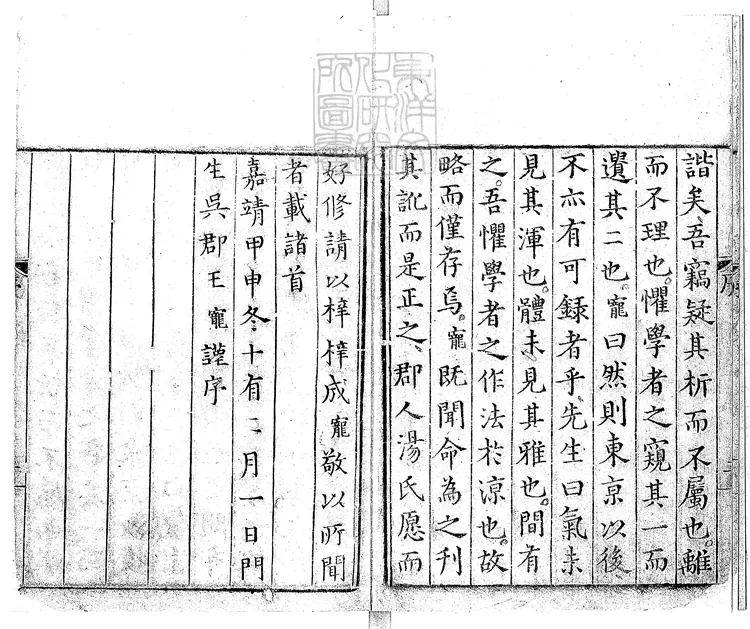 諧矣吾竊疑其析而不屬也。離
而不理也。懼學者之窺其一而
遺其二也。寵曰然則東京以後
不亦有可録者乎先生曰氣未
見其渾也。體未見其雅也。間有
之。吾懼學者之作法於涼也。故
略而僅存焉。寵既聞命為之刊
其訛而是正之郡人湯氏愿而
好修請以梓梓成寵敬以所聞
者載諸首
嘉靖甲申冬十有二月一日門
生吳郡王寵謹序
序